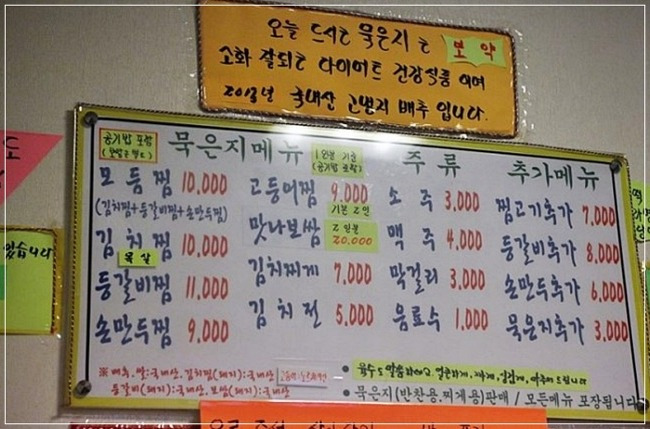 오늘 드시는 묵은지는 보약
소화 잘되는 다이어트 건강식품 이며
2013년 국내산 고냉지 배추 입니다.
공기밥 포함
묵은지메뉴
1인분 기준
(공기밥 포함)
주류
추가메뉴
모듬찜 10,000
(김치찜+등갈비찜+손만두찜)
김치찜 10,000
목살
등갈비찜 11,000
손만두찜 9,000
고등어찜 9,000
기본 2인
맛나보쌈 2인분 20,000
김치찌게 7,000
김치전 5,000
소주 3,000
맥주 4,000
막걸리 3,000
음료수 1,000
찜고기추가 7,000
등갈비추가 8,000
손만두추가 6,000
묵은지추가 3,000
※ 배추.쌀:국내산. 김치찜(돼지):국내산
등갈비(돼지):국내산. 보쌈(돼지):국내산
묵은지(반찬용.찌게용)판매 / 모든메뉴 포장됩니다
있습니다